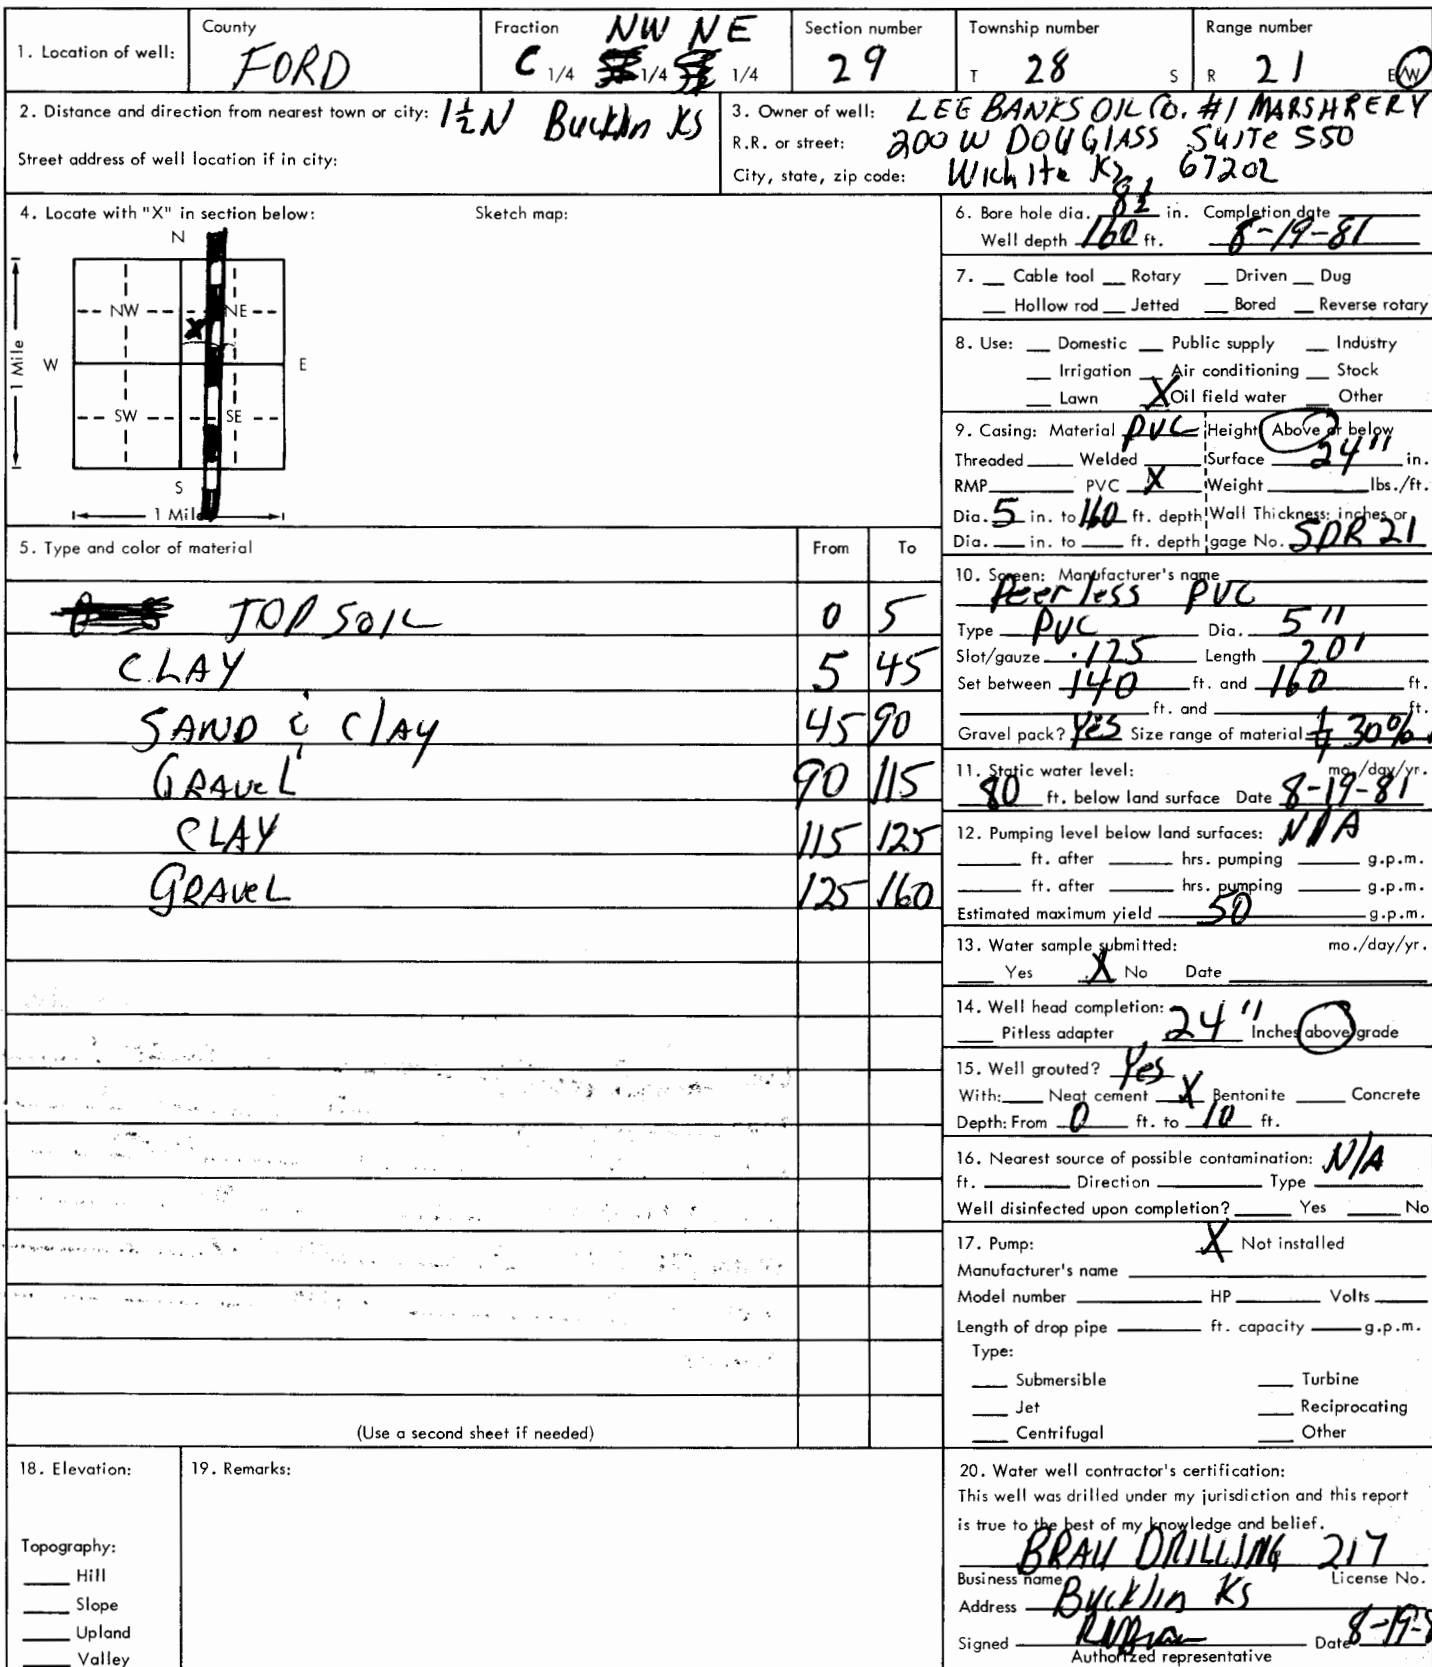 1. Location of well:
County
FORD
Fraction
NW NE
C 1/4 1/4 1/4
Section number
29
Township number
T 28 S
Range number
R 21 E/W
2. Distance and direction from nearest town or city: 1½ N Bucklin Ks
Street address of well location if in city:
3. Owner of well: LEE BANKS OIL CO. #1 MARSHRERY
R.R. or street: 200 W DOUGLASS SUITE 550
City, state, zip code: Wichita Ks, 67202
4. Locate with "X" in section below:
Sketch map:
N
NW NE
X
W E
1 Mile
SW SE
S
1 Mile
5. Type and color of material From To
TOP SOIL 0 5
CLAY 5 45
SAND & CLAY 45 90
GRAVEL 90 115
CLAY 115 125
GRAVEL 125 160
(Use a second sheet if needed)
6. Bore hole dia. in. Completion date
Well depth 160 ft. 8-19-81
7. Cable tool Rotary Driven Dug
Hollow rod Jetted Bored Reverse rotary
8. Use: Domestic Public supply Industry
Irrigation Air conditioning Stock
Lawn X Oil field water Other
9. Casing: Material PVC Height Above or below
Threaded Welded Surface 24" in.
RMP PVC X Weight lbs./ft.
Dia. 5 in. to 160 ft. depth Wall Thickness: inches or
Dia. in. to ft. depth gage No. SDR 21
10. Screen: Manufacturer's name
Peerless PVC
Type PVC Dia. 5"
Slot/gauze .125 Length 20'
Set between 140 ft. and 160 ft.
ft. and ft.
Gravel pack? Yes Size range of material 30%
11. Static water level: mo./day/yr.
80 ft. below land surface Date 8-19-81
12. Pumping level below land surfaces: N/A
ft. after hrs. pumping g.p.m.
ft. after hrs. pumping g.p.m.
Estimated maximum yield 50 g.p.m.
13. Water sample submitted: mo./day/yr.
Yes X No Date
14. Well head completion:
Pitless adapter 24" Inches above grade
15. Well grouted? Yes
With: Neat cement X Bentonite Concrete
Depth: From 0 ft. to 10 ft.
16. Nearest source of possible contamination: N/A
ft. Direction Type
Well disinfected upon completion? Yes No
17. Pump: X Not installed
Manufacturer's name
Model number HP Volts
Length of drop pipe ft. capacity g.p.m.
Type:
Submersible Turbine
Jet Reciprocating
Centrifugal Other
18. Elevation:
Topography:
Hill
Slope
Upland
Valley
19. Remarks:
20. Water well contractor's certification:
This well was drilled under my jurisdiction and this report
is true to the best of my knowledge and belief.
BRAU DRILLING 217
Business name License No.
Address Bucklin Ks
Signed Date 8-19-8
Authorized representative